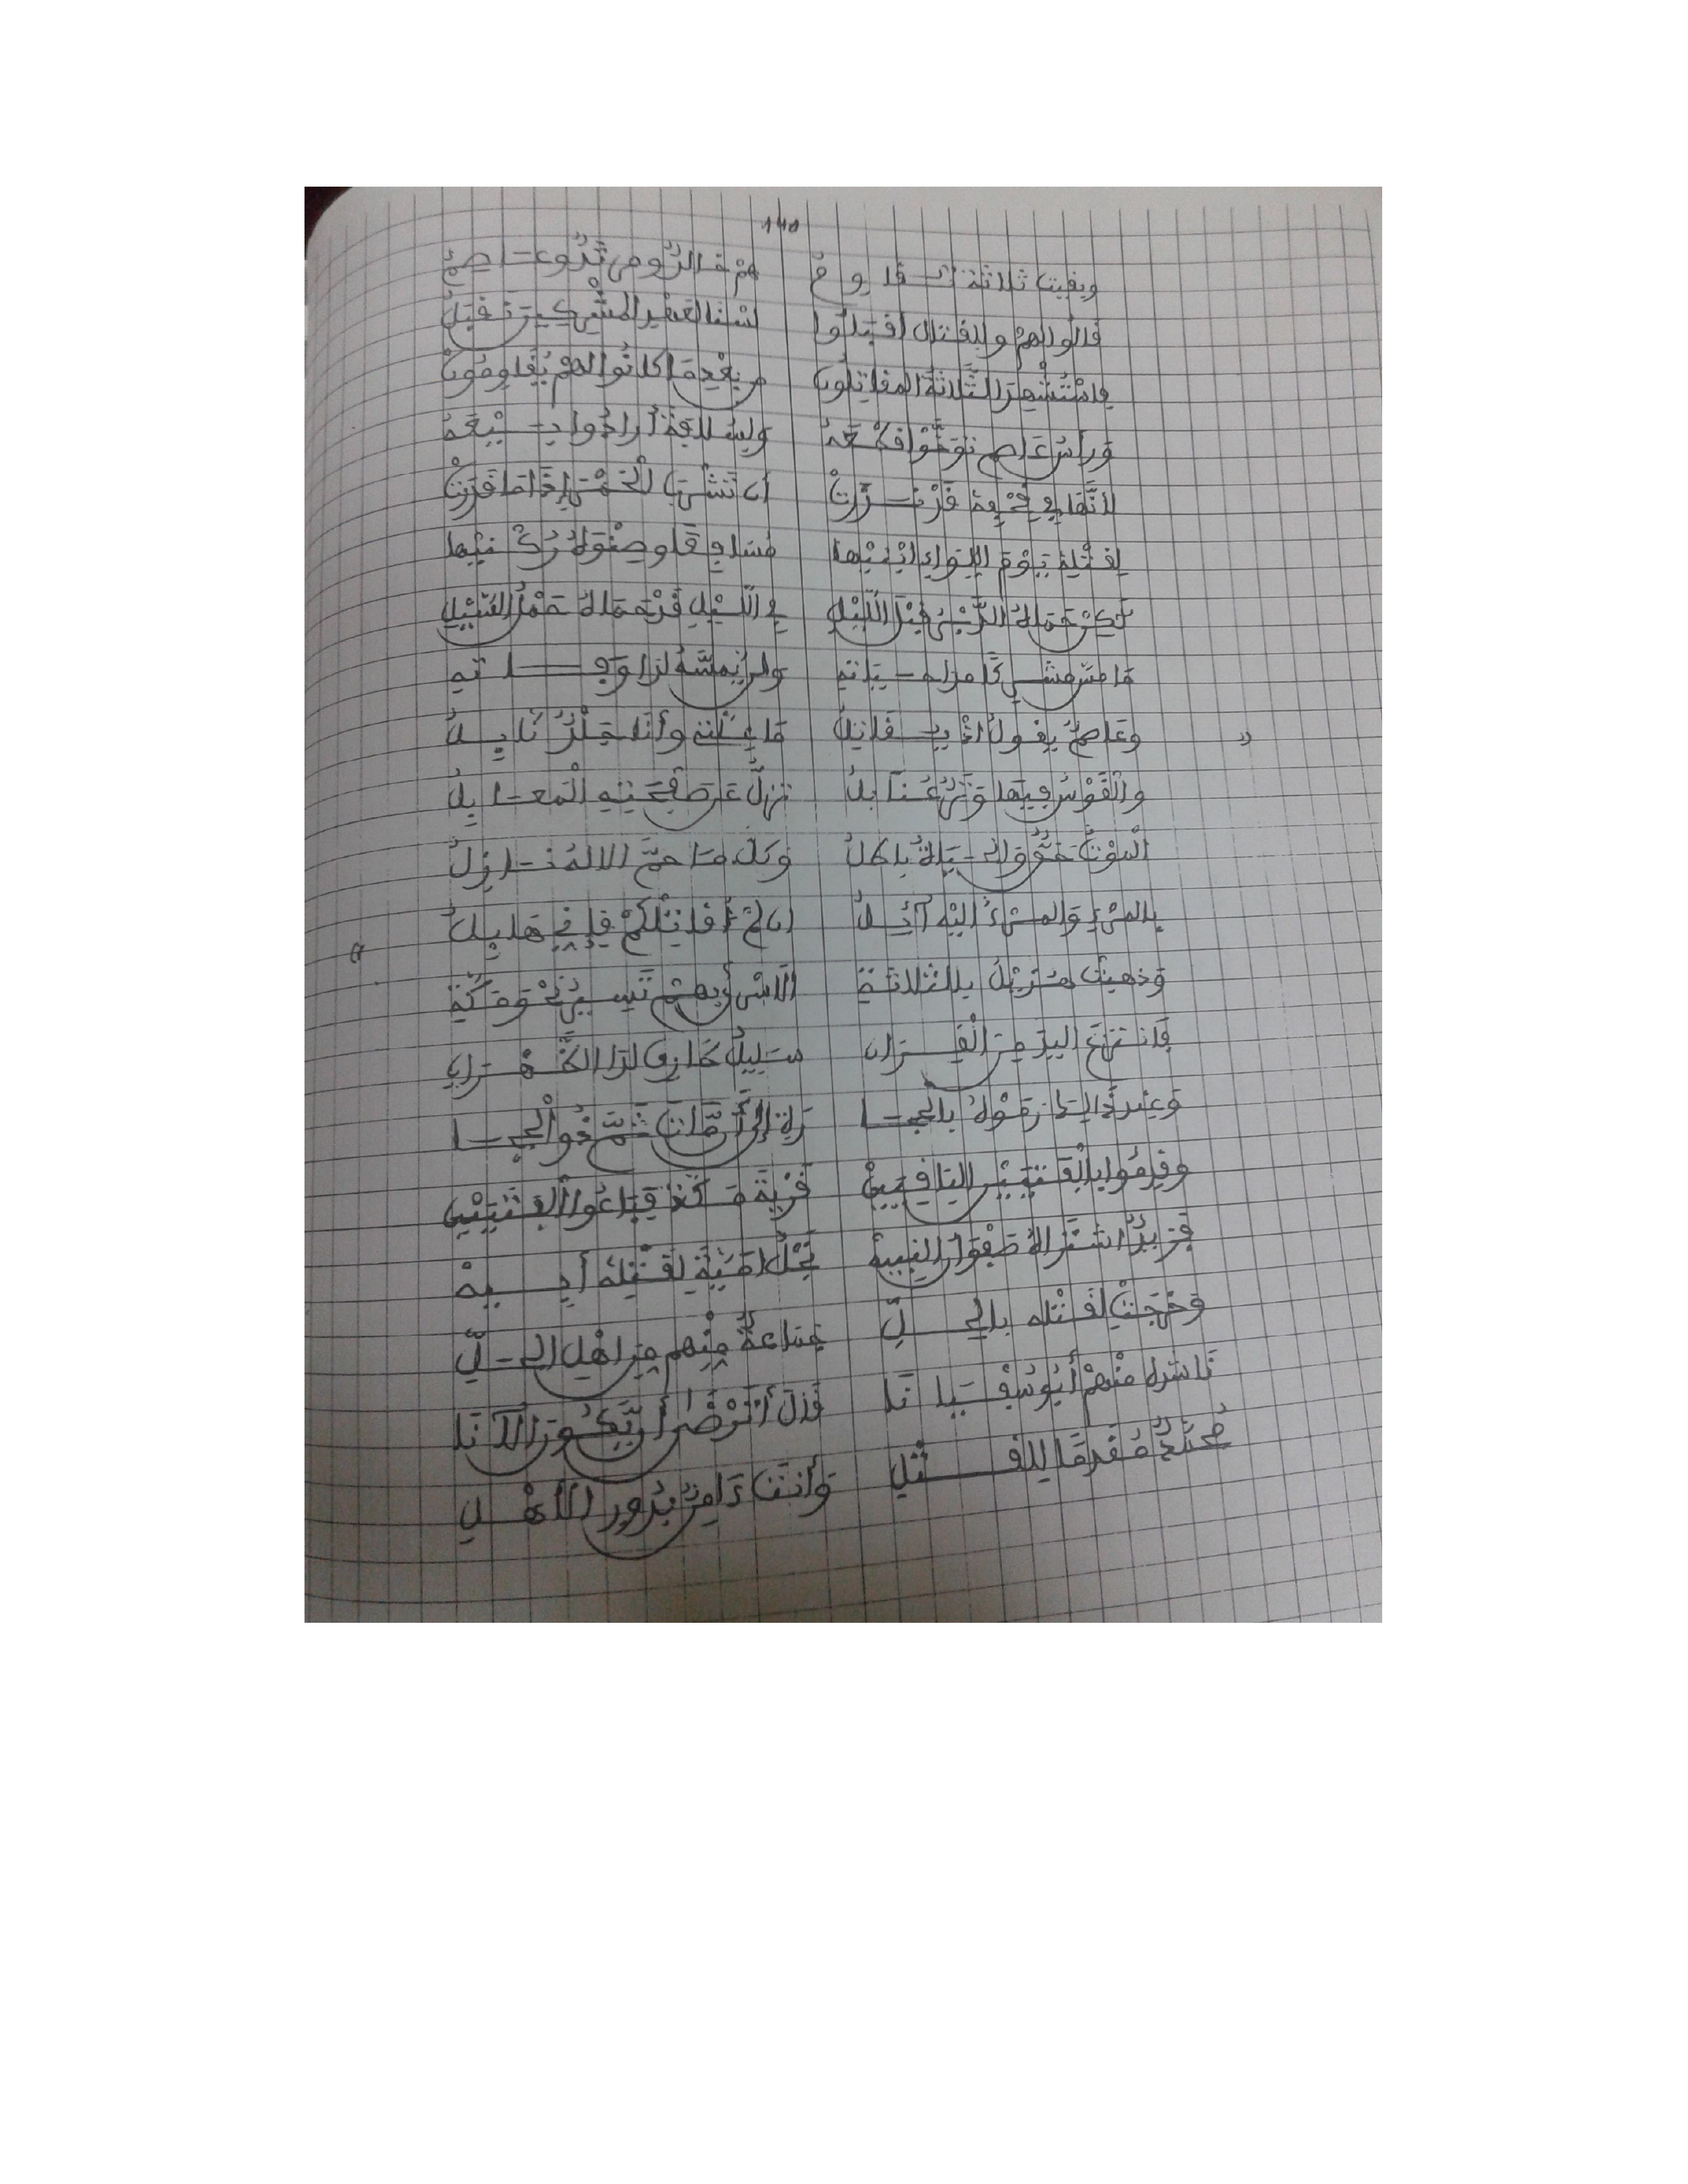 140
وبقيت ثلاثة تقاوم هم خالد ومرثد وعاصم
قالوا لهم وللقتال اقبلوا لسنا لعهد المشركين نقبل
فاستشهد الثلاثة المقاتلون من بعد ما كانوا لهم يقاومون
ورأس عاصم نووا قطعه وليسلافة أرادوا بيعه
لأنها في قحفه قد نذرت أن تشرب الخمر إذا ما قدرت
لقتله يوم اللواء ابنيها مسافع وصنوه
لكن حماه الدبر قبل الليل في الليل قد حماه حمل السيل
ما مس مشركا مدا حياته ولن يمسه لدا وفاته
وعاصم يقول إذ يقاتل ما علتي وأنا جلد نابل
والقوس فيها وتر عنابل تزل عن صفحتها المعابل
الموت حق والحياة باطل وكل ما حم الإله نازل
بالمرء والمرء إليه آئل إن لم أقاتلكم فإني هابل
وذهبت هذيل بالثلاثة الأسرى بهم تسير نحو مكة
فانتزع اليد من القران سليل طارق لدا الظهران
وعند ذلك رموه بالحجا رة إلى أن مات ثم ذو الحجا
وقدموا بالفتيين الباقيين قرية مكة فباعوا الفتيين
فزيد اشتراه صفوان النبيه نجل امية لقتله أبيه
وخرجت لقتله بالحل جماعة منهم من اهل الحل
ناشده منهم أبو سفيانا قال أترضى أن يكون الآنا
محمد مقدما للقتل وأنت دامن بدور الأهل